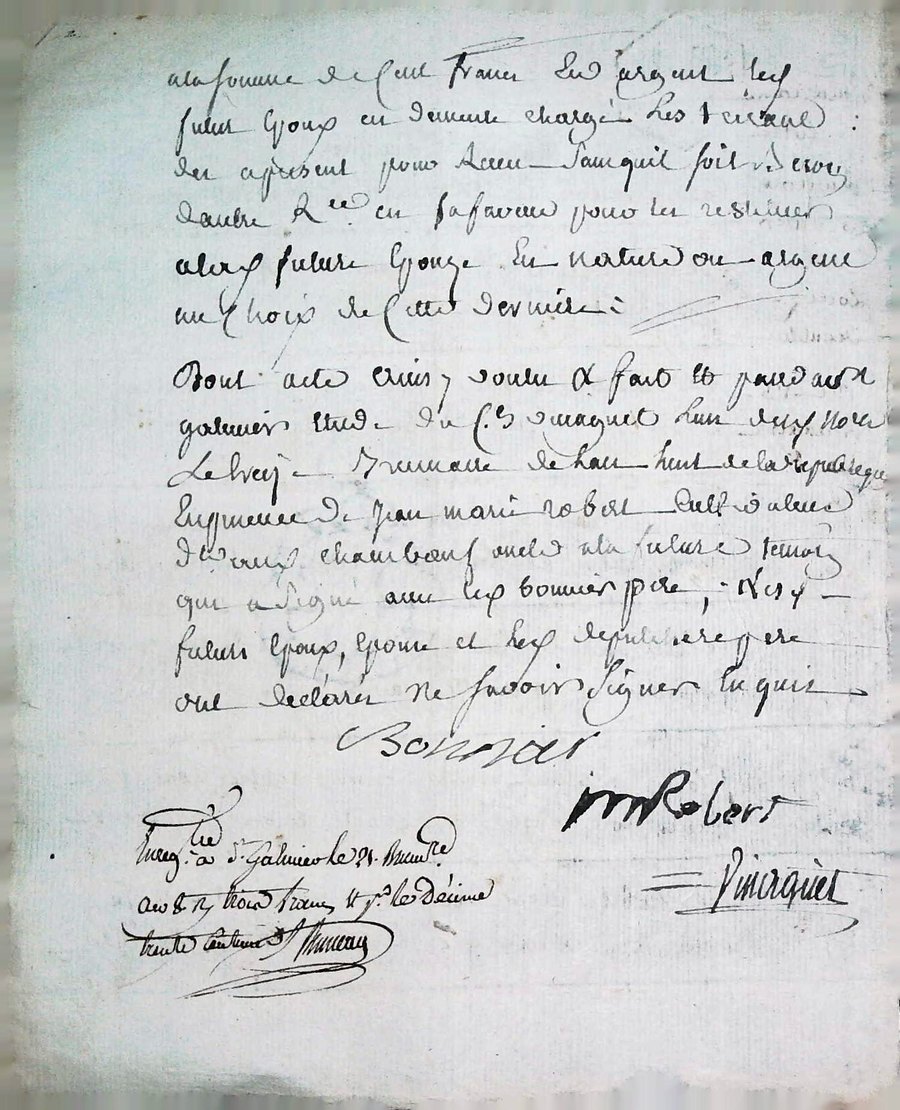 ala somme de Cent francs En argent les
futur Epoux en demeure chargé Les tenant
des apresent pour Receu Sans quil soit
dautre Ree en sa faveur pour les restituer
alad future Epouze En nature ou argent
au Choix de Cette derniere
Dont acte ainsy voulu & fait et passé a st
galmier Etude du C.en vinaguet Lun desd No.res
Le treize Brumaire de Lan huit de la republique
En presence de Jean marie robert Cultivateur
dt aux chambœuf oncle ala future temoin
qui a Signé avec led bonnier pere, & lesd
futurs Epoux, Epouse et led pere
ont declaré Ne Savoir Signer Enquis
Bonnier
jmRobert
Enreg.tré a St. Galmier le 21. Brum.re
an 8 Rç trois francs et pr. le Décime
trente Centimes